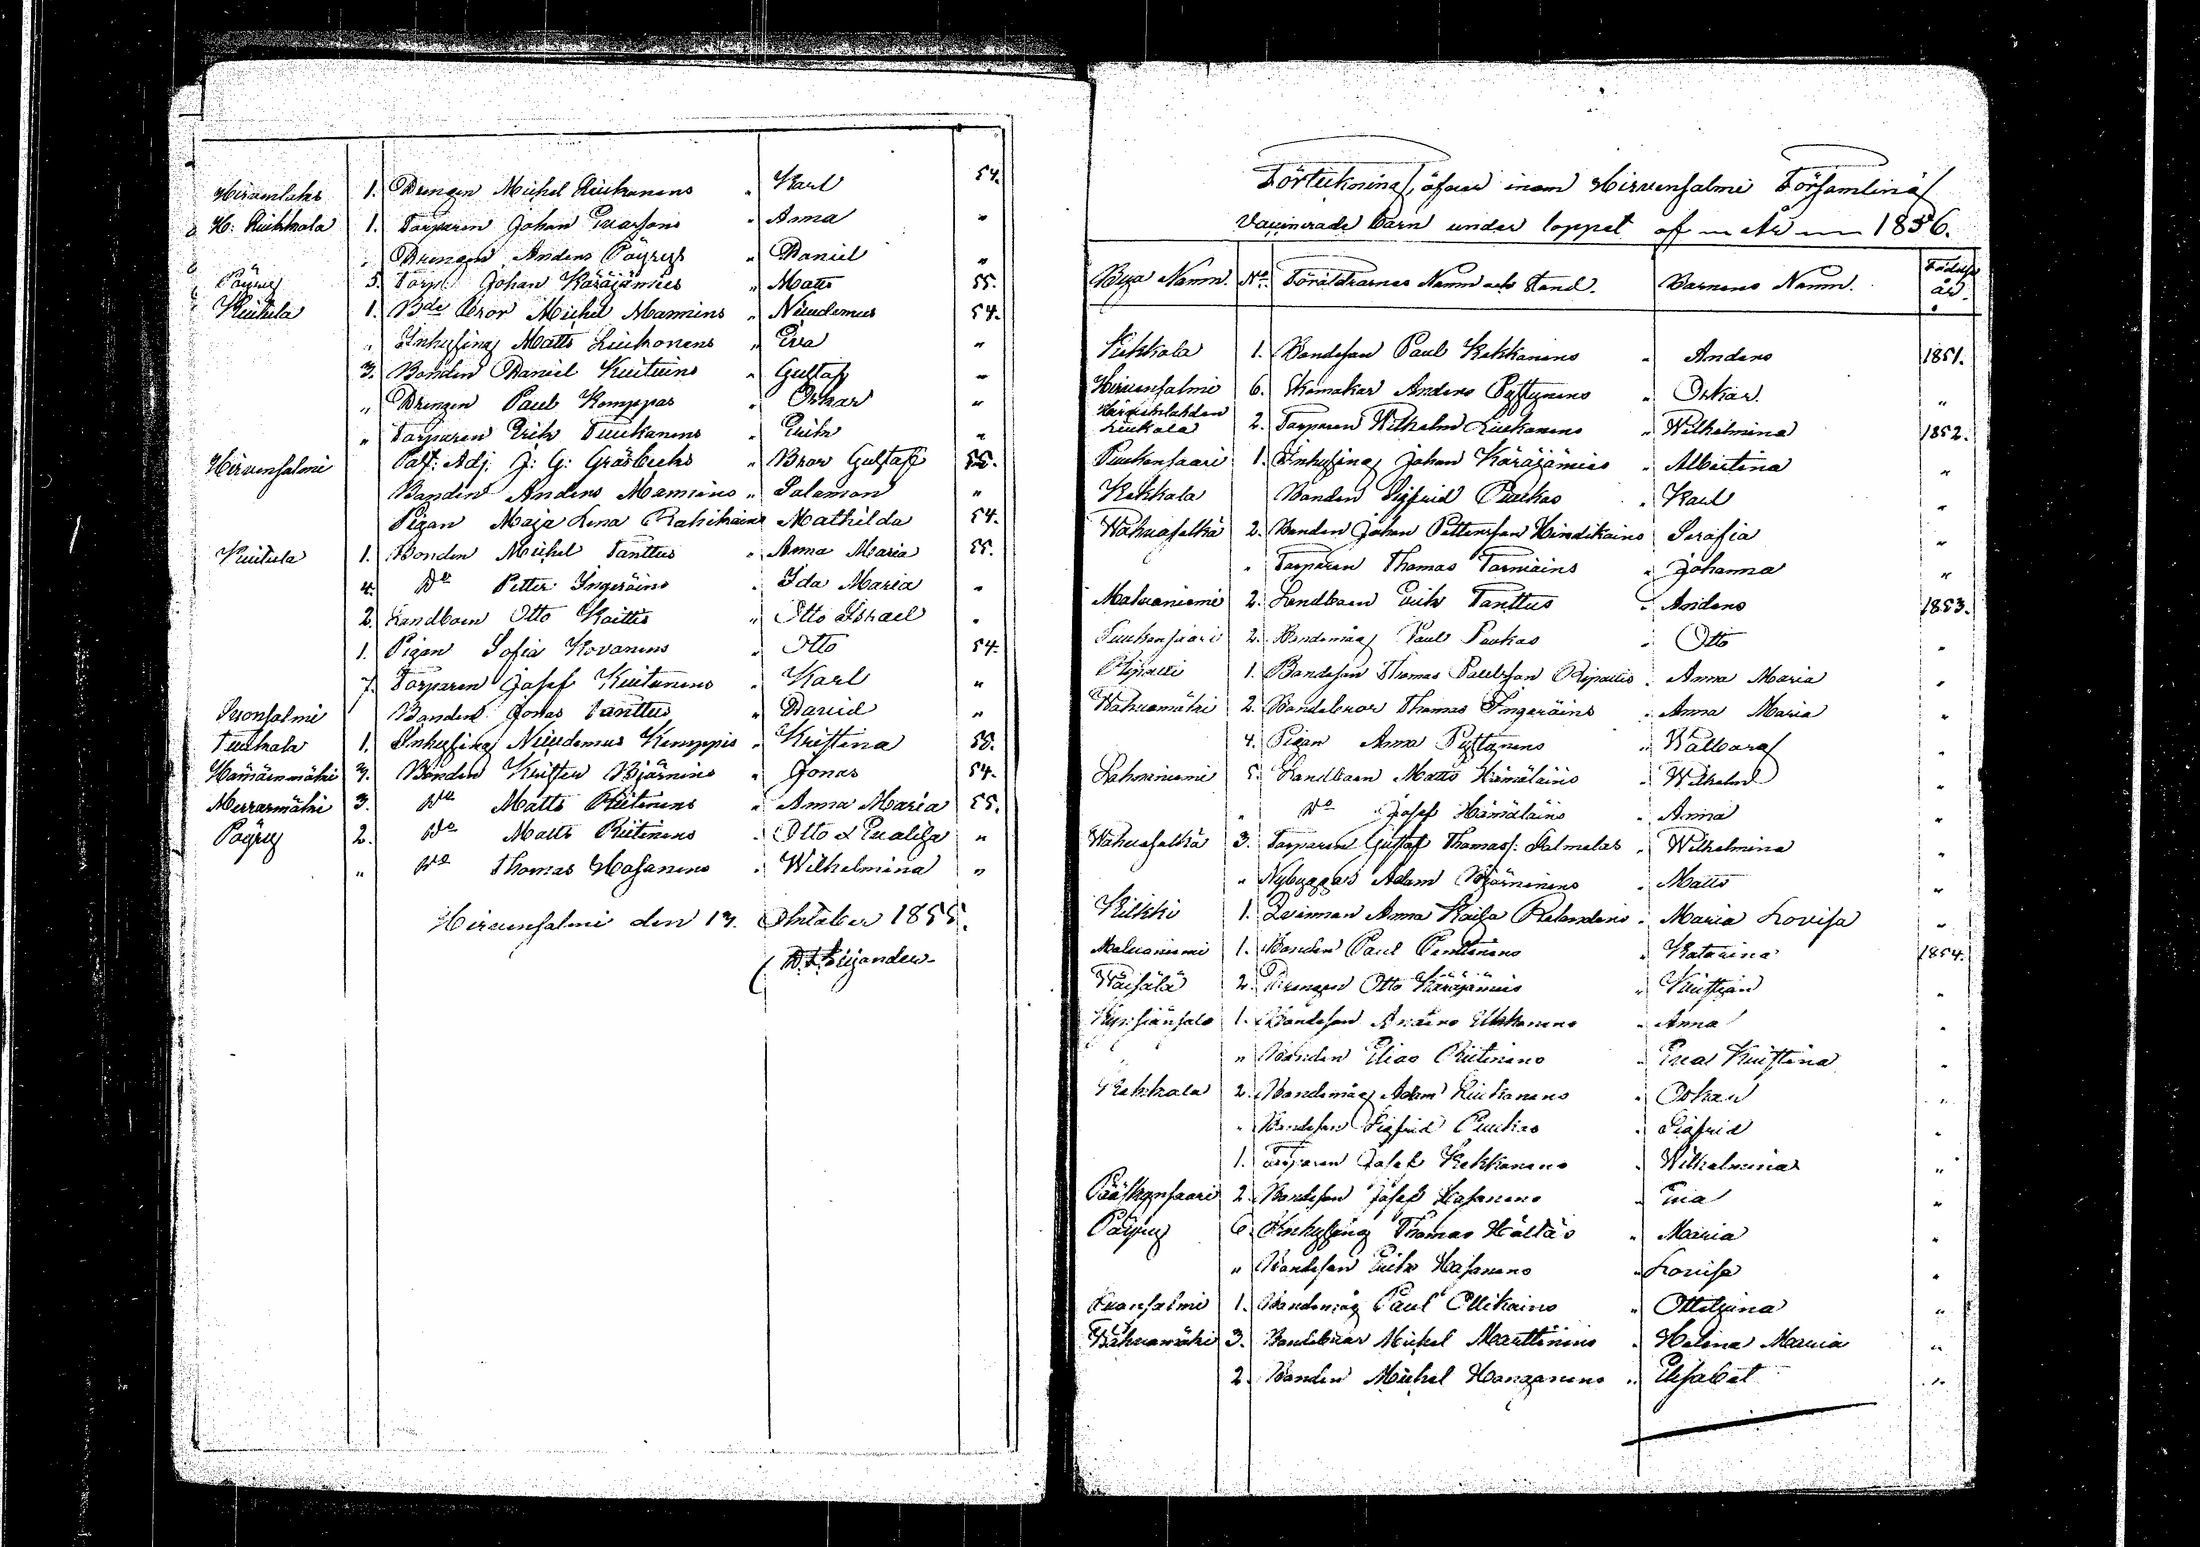 Hirvenlaks 1. Drengen Michel Liukonens " Karl 54.
H: Liukkala 1. Torparen Johan Ewarssons " Anna "
" Drengen Anders Pöyrys " Daniel "
Pöyry 5. Torp: Johan Käräjämies " Matts 55.
Kuitula 1. Bde Bror Michel Mannins " Nicudemus 54.
" Inhysing Matts Liukonens " Eva "
3. Bonden Daniel Kuituins " Gustaf "
" Drengen Paul Komppas " Oskar "
" Torparen Erik Tuukanens " Erik "
Hirvensalmi Past: Adj. J: G: Gråsbecks " Bror Gustaf 55.
Bonden Anders Mannins " Salomon "
Pigan Maja Lena Rahikains Mathilda 54.
Kuitula 1. Bonden Michel Tanttus " Anna Maria 55.
4. Do Petter Ingeröins " Ida Maria "
2. Landboen Otto Kaittis " Otto Israel "
1. Pigan Sofia Kovanens " Otto 54.
7. Torparen Josef Kuitunens " Karl "
Suonsalmi Bonden Jonas Tanttus " David "
Tuukkala 1. Inhysing Nicudemus Kemppis " Kristina 55.
Hämeenmäki 3. Bonden Krister Björnins " Jonas 54.
Merrasmäki 3. Do Matts Riitinens " Anna Maria 55.
Pöyry 2. Do Matts Riitinens " Otto & Evaliza "
" Do Thomas Hasanens " Wilhelmina "
Hirvensalmi den 13. Oktober 1855.
Förteckning, öfver inom Hirvensalmi Församling
Vaccinerade barn under loppet af år 1856.
Bya Namn. No. Föräldrarnes Namn och Stand. Barnens Namn. Födelse år.
Kekkola 1. Bondeson Paul Kekkonens " Anders 1851.
Hirvensalmi 6. Skomakar Anders Pyttynens " Oskar "
Liukola 2. Torparen Wilhelm Liukonens " Wilhelmina 1852.
Puukonsaari 1. Inhysing Johan Käräjämies " Albertina "
Kekkola Bonden Sigfrid Puukas " Karl "
Wahvaselkä 2. Bonden Johan Pettersson Hindikains Serafia "
" Torparen Thomas Torniains " Johanna "
Malvaniemi 2. Landboen Erik Tanttus " Anders 1853.
Puukonsaari 2. Bondemåg Paul Puukas " Otto "
Ripatti 1. Bondeson Thomas Paulsson Ripattis " Anna Maria "
Wahvamäki 2. Bondebror Thomas Ingeröins " Anna Maria "
4. Pigan Anna Pyttynens " Walborg "
Lahnaniemi 5. Landboen Matts Hämäläins " Wilhelm "
" Do Josef Hämäläins " Anna "
Wahvaselkä 3. Torparen Gustaf Thomass: Salmelas " Wilhelmina "
" Nybyggar Adam Björninens " Matts "
Kilkki 1. Qvinnan Anna Kaisa Relanders " Maria Lovisa "
Malvaniemi 1. Bonden Paul Penttinens " Katarina 1854.
Väisälä 2. Drengen Otto Käräjämies " Kristian "
1. Bondeson Anders Ukkonens " Anna "
" Bonden Elias Riitinens " Eva Kristina "
Kekkola 2. Bondemåg Adam Liukonens " Oskar "
" Bondeson Sigfrid Puukas " Sigfrid "
1. Torparen Josef Kekkonens " Wilhelmina "
Pääskynsaari 2. Bondeson Josef Hasanens " Eva "
Pöyry 6. Inhysing Thomas Hältäs " Maria "
" Bondeson Erik Hasanens " Lovisa "
Suonsalmi 1. Bondemåg Paul Ollikains " Ottiliana "
Wahvamäki 3. Bondebror Michel Marttinens " Helena Maria "
2. Bonden Michel Hongonens " Elisabet "